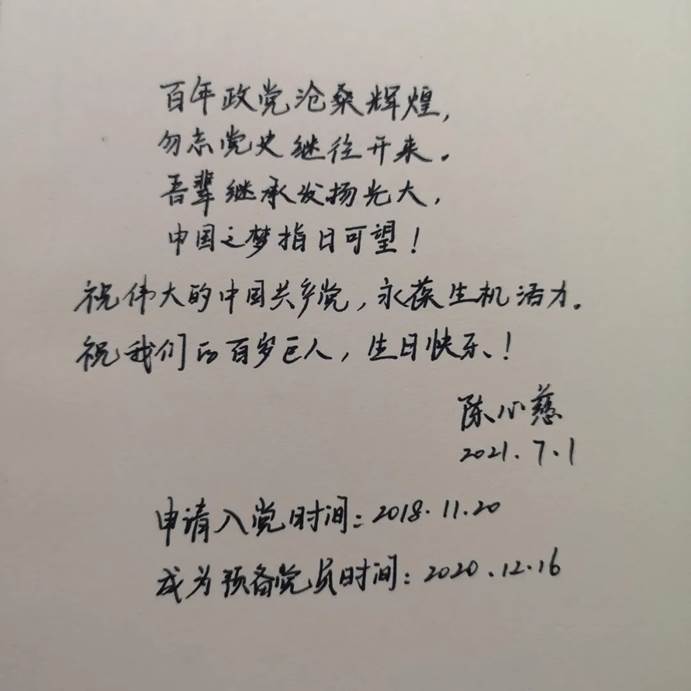 百年政党沧桑辉煌，
勿忘党史继往开来。
吾辈继承发扬光大，
中国之梦指日可望！
祝伟大的中国共产党，永葆生机活力。
祝我们的百岁巨人，生日快乐！
陈心慈
2021.7.1
申请入党时间：2018.11.20
成为预备党员时间：2020.12.16